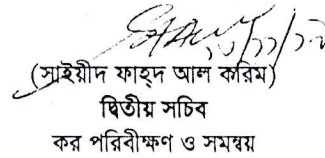 (সাইয়ীদ ফাহ্দ আল করিম)
দ্বিতীয় সচিব
কর পরিবীক্ষণ ও সমন্বয়